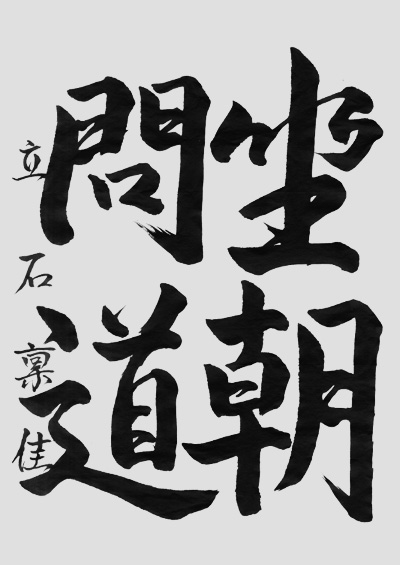 坐朝
問道
立石稟佳